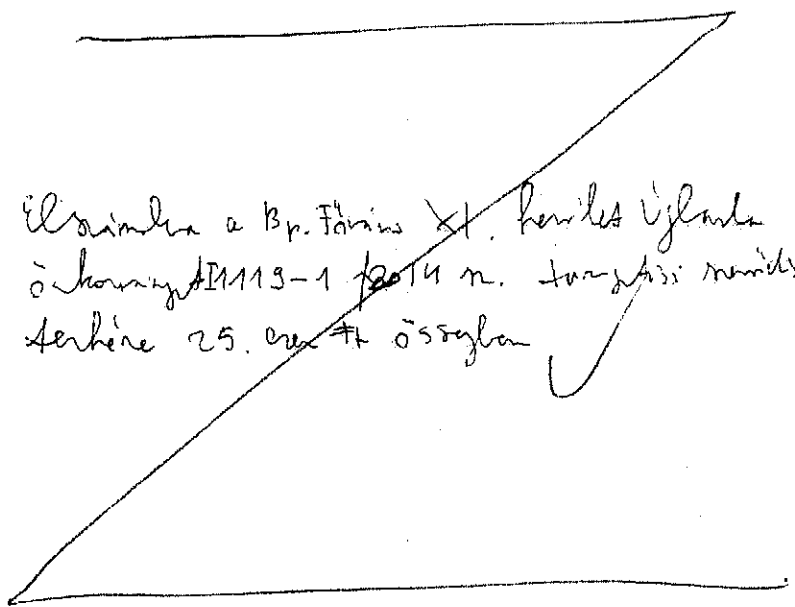 Elszámolva a Bp. Főváros XI. kerület Újbuda
önkormányzat XI/1119-1/2014 sz. támogatási szerződés
terhére 25. ezer Ft összegben